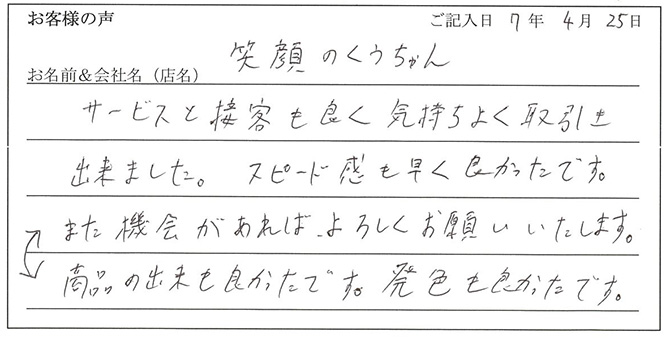 お客様の声 ご記入日 7年 4月 25日
笑顔のくうちゃん
お名前&会社名（店名）
サービスと接客も良く気持ちよく取引き
出来ました。スピード感も早く良かったです。
また機会があれば、よろしくお願いいたします。
商品の出来も良かったです。発色も良かったです。